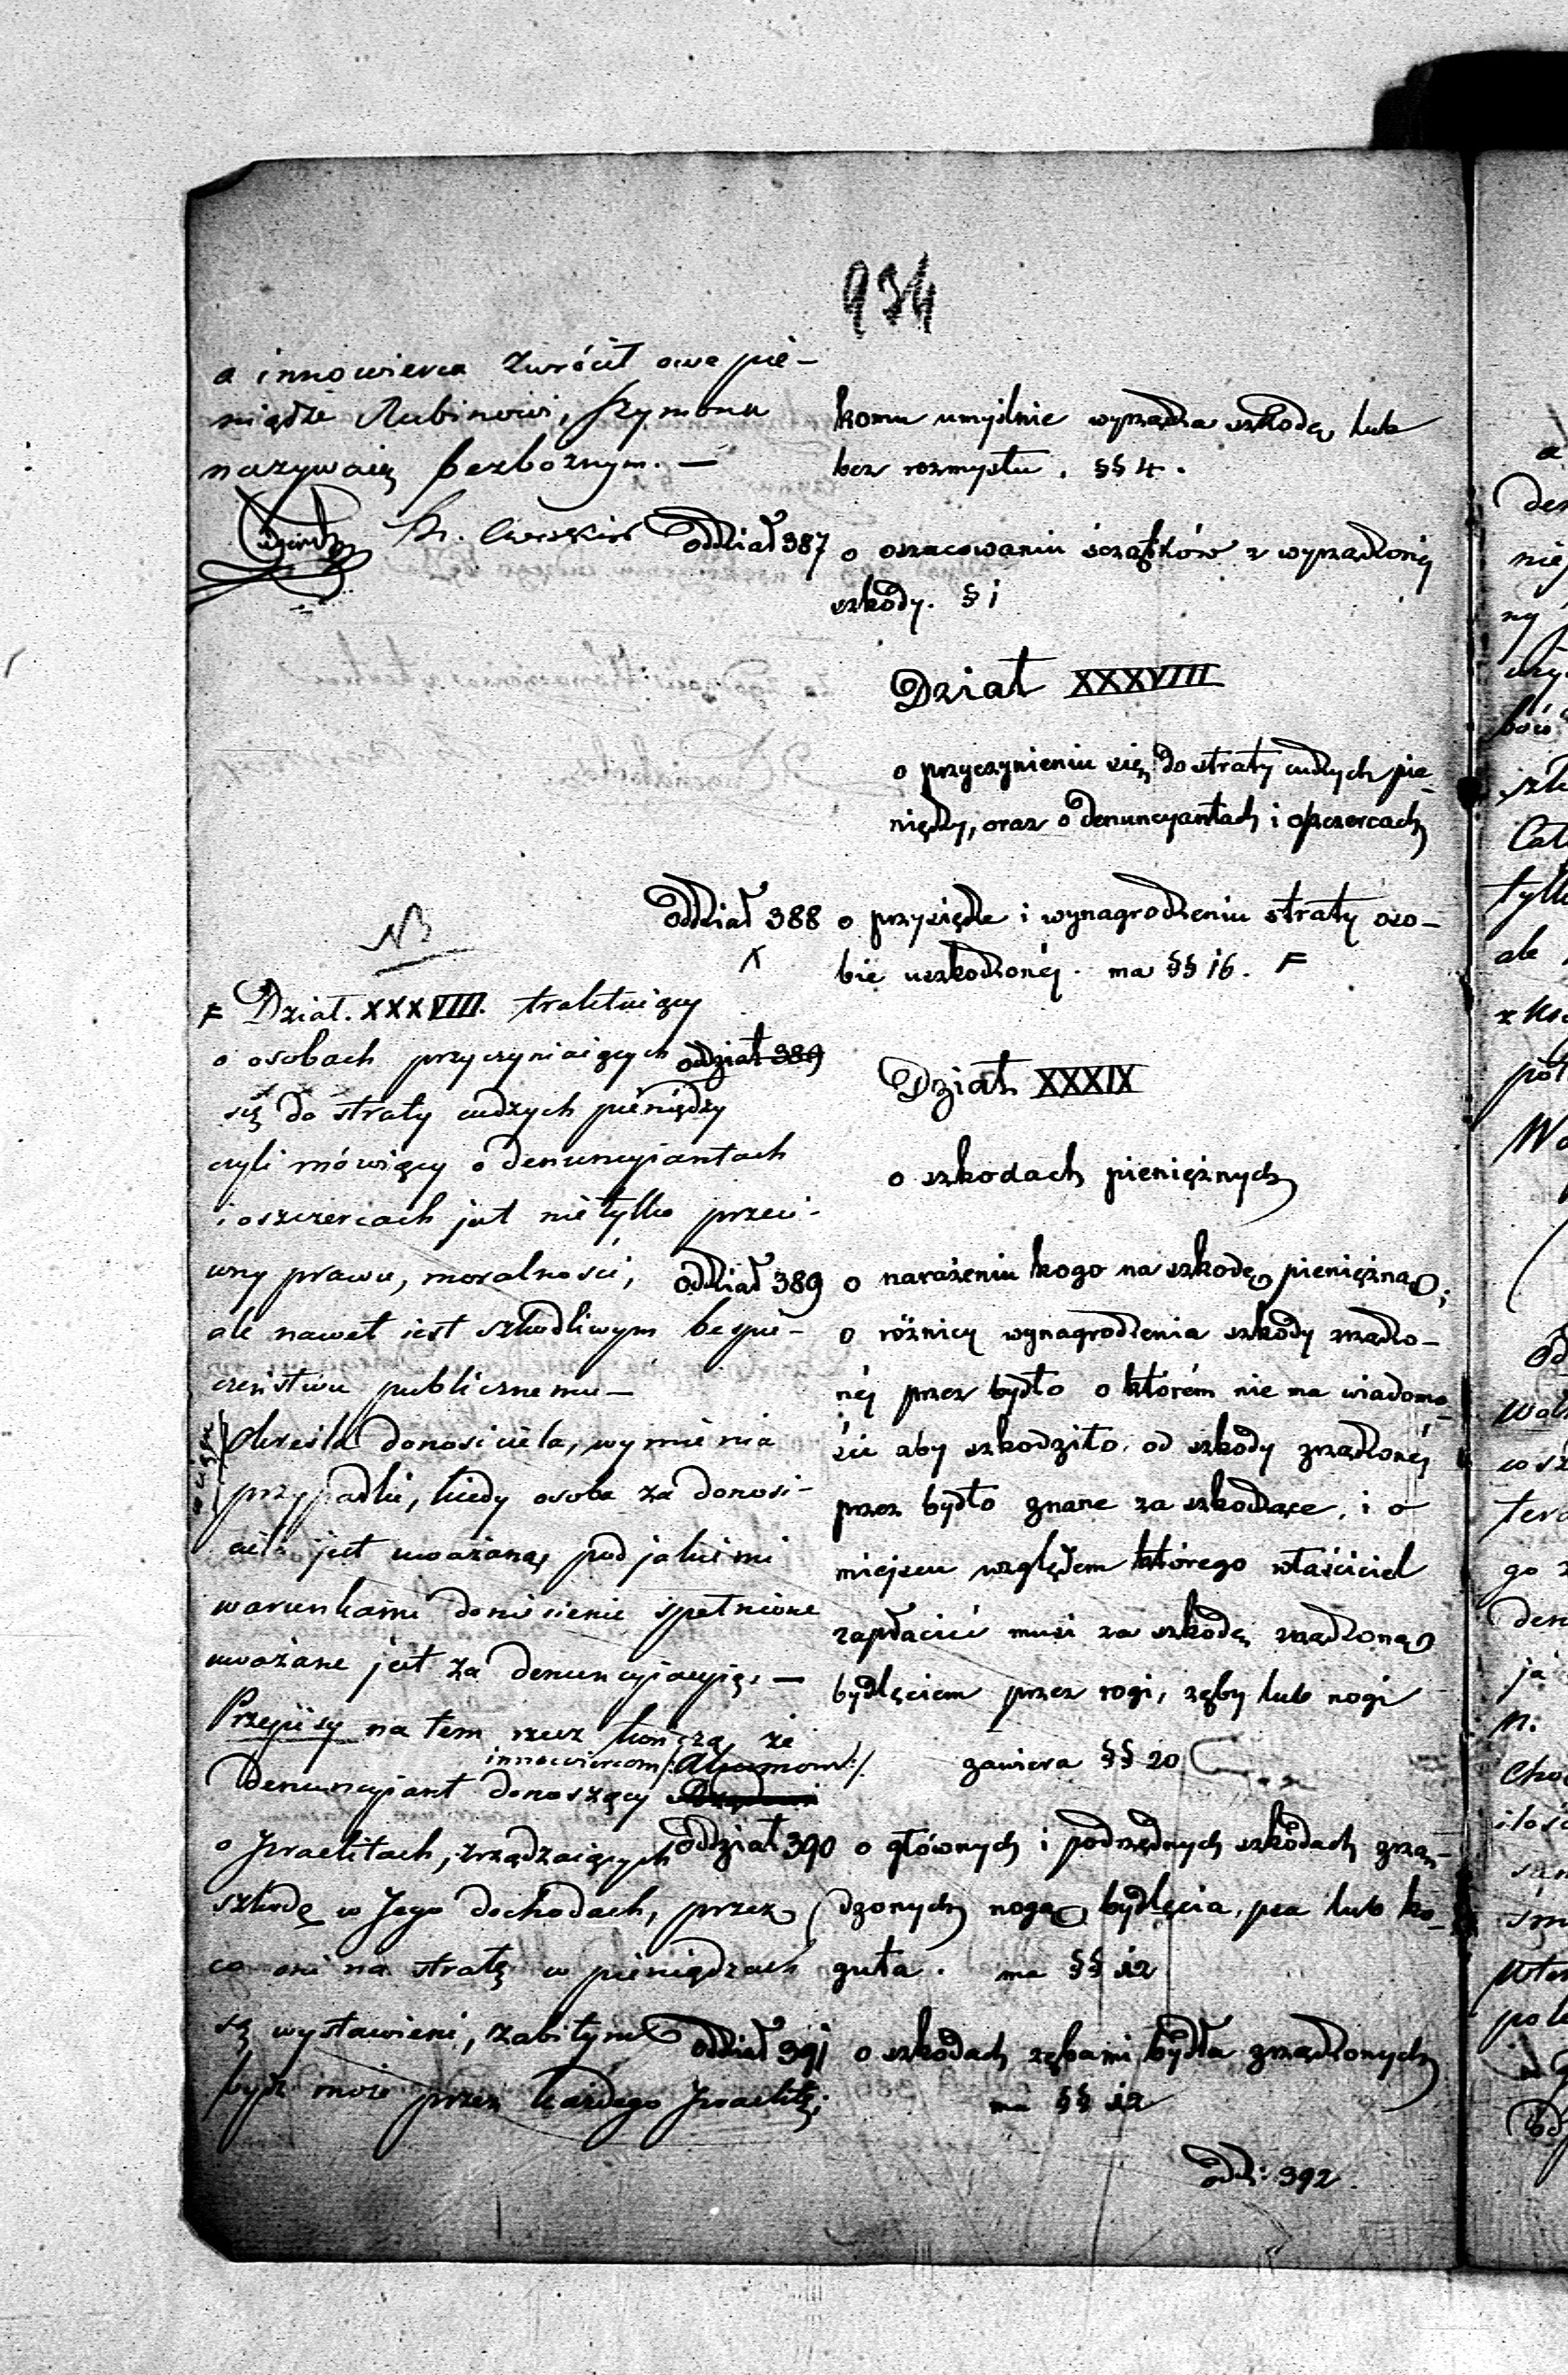 934
a innowierca zwrócił owe pie-
niądze Rubinowi, Szymona
nazywaią bezbożnym. —
komu umyślnie wyrządza szkodę, lub
bez rozmysłu. §§ 4.
oddział 387 o oszacowaniu szczątków z wyrządzonéj
szkody. § 1
Dział XXXVIII
o przyczynieniu się do straty cudzych pie-
niędzy, oraz o denuncyantach i oszczercach
oddział 388 o przysiędze i wynagrodzeniu straty oso-
bie uszkodzonéj. ma §§ 16. F
X
NB
F Dział. XXXVIII. traktuiący
o osobach przyczyniaiących
się do straty cudzych pieniędzy
czyli mówiący o denuncyiantach
i oszczercach jest nietylko przeci-
wny prawu, moralności,
ale nawet iest szkodliwym bespie-
czeństwu publicznemu —
określa donosiciela, wymienia
przypadki, kiedy osoba za donosi-
ciela jest uważaną, pod jakiemi
warunkami doniesienie spełnione
uważane jest za denuncyiacyią. —
Przepisy na tem rzecz kończą, że
innowiercom /:Akumom:/
Denuncyiant donoszący
o Izraelitach, zrządzaiących
szkodę w Jego dochodach, przez
co oni na stratę w pieniądzach
są wystawieni, zabitym
bydź może przez każdego Izraelitę;
odział 389
Dział XXXIX
o szkodach pieniężnych
oddział 389 o narażeniu kogo na szkodę pieniężną;
o różnicy wynagrodzenia szkody zrządzo-
néj przez bydło o którém nie ma wiadomo-
ści aby szkodziło, od szkody zrządzonéj
przez bydło znane za szkodzące, i o
miejscu względem którego właściciel
zapłacić musi za szkodę zrządzoną
bydlęciem przez rogi, zęby lub nogi
zawiera §§ 20
oddział 390 o głównych i podrzędnych szkodach zrzą-
dzonych nogą bydlęcia, psa lub ko-
guta. ma §§ 12
oddział 391 o szkodach zębami bydła zrządzonych
ma §§ 12
odd: 392.